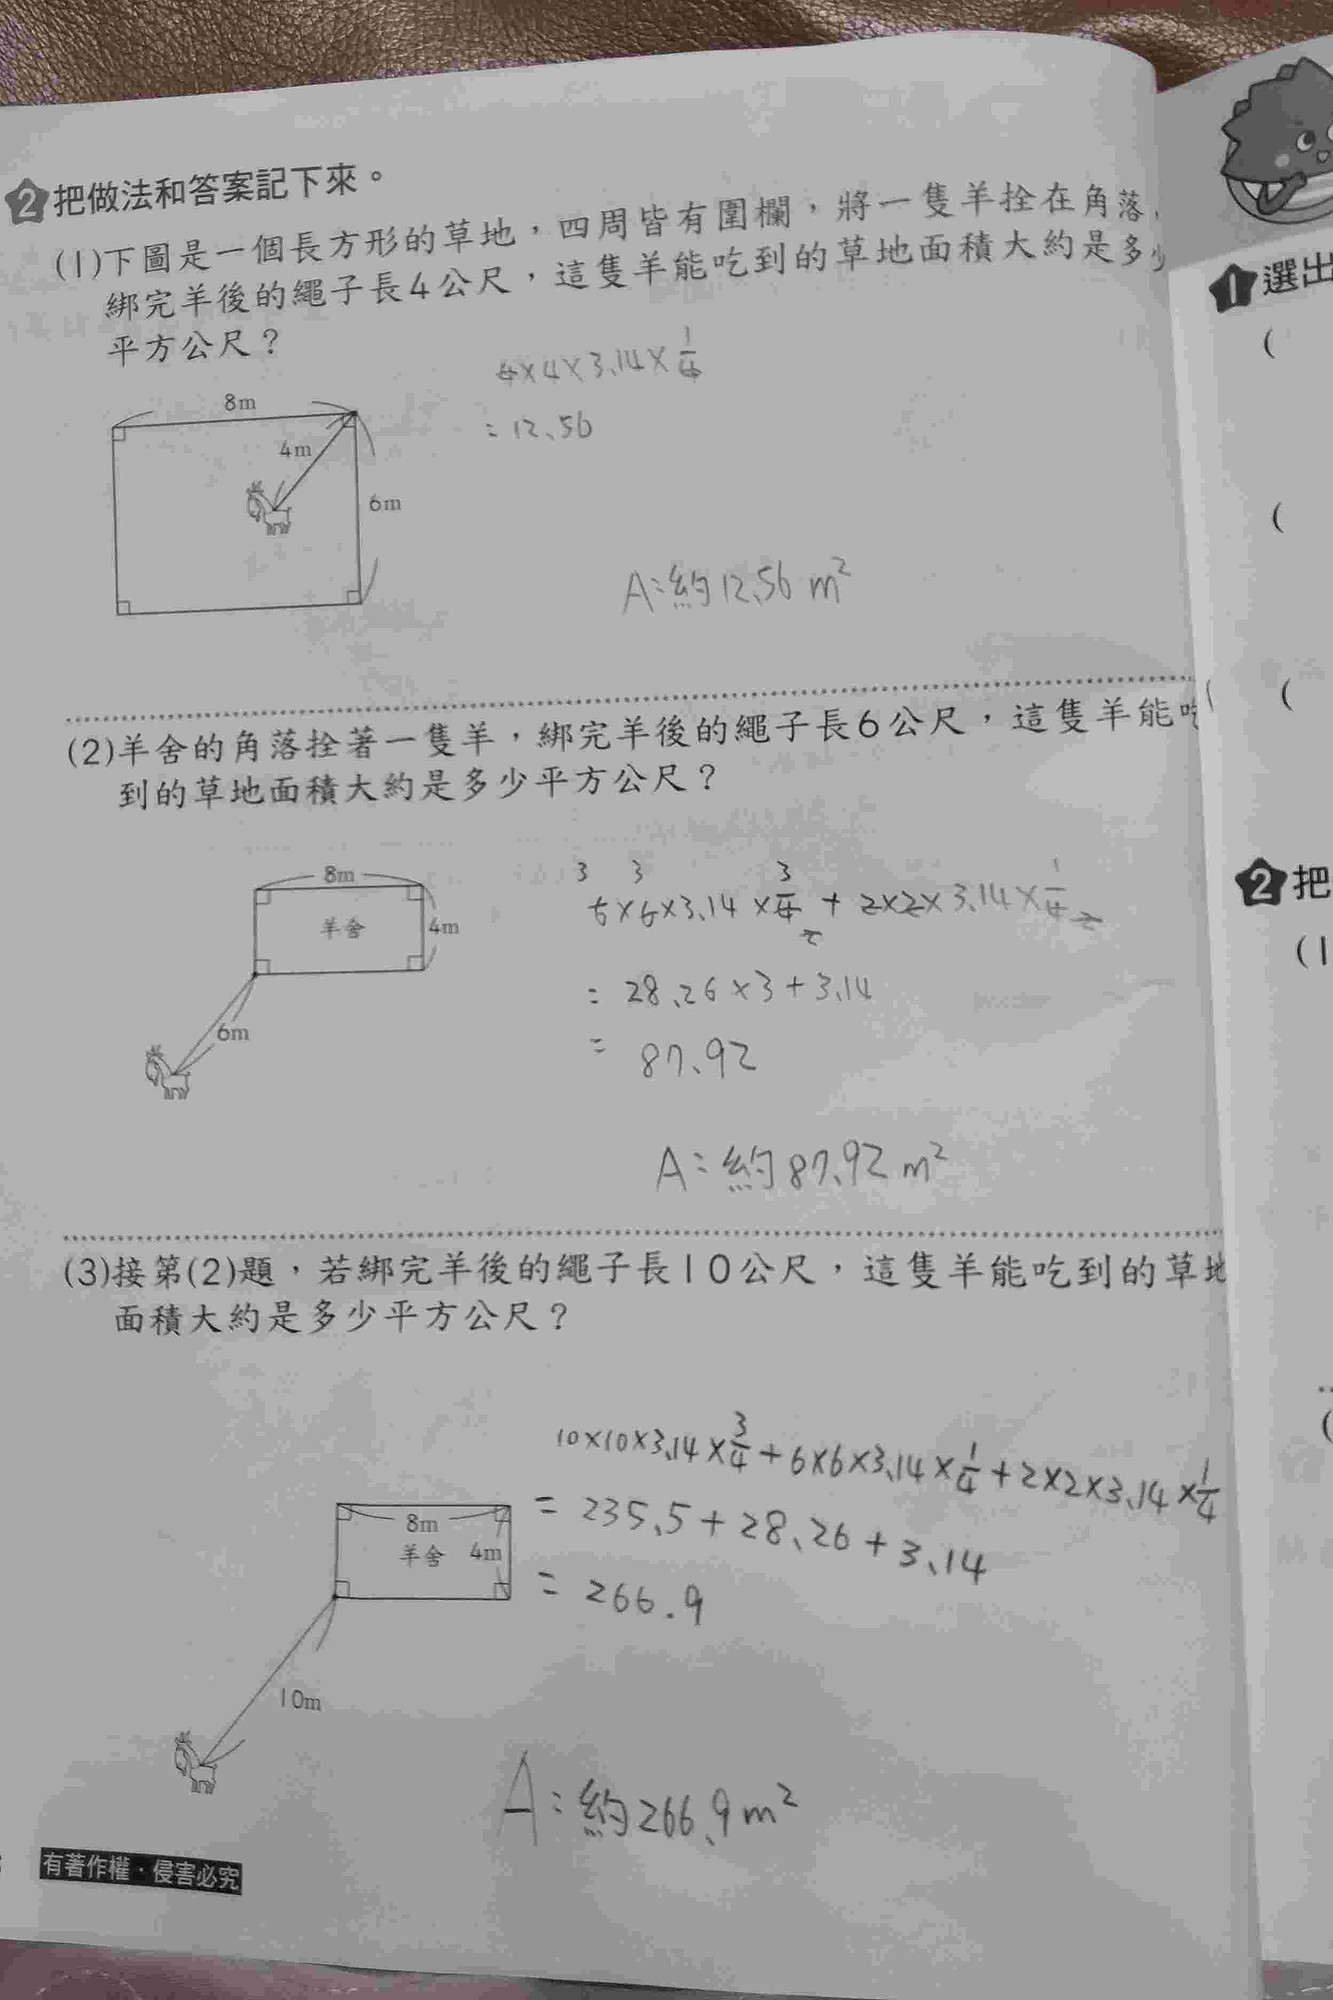 2 把做法和答案記下來。
(1)下圖是一個長方形的草地，四周皆有圍欄，將一隻羊拴在角落，
綁完羊後的繩子長4公尺，這隻羊能吃到的草地面積大約是多少
平方公尺？
4×4×3.14×1/4
=12.56
8m
4m
6m
A:約12.56 m²
(2)羊舍的角落拴著一隻羊，綁完羊後的繩子長6公尺，這隻羊能吃
到的草地面積大約是多少平方公尺？
3 3
6×6×3.14×3/4+2×2×3.14×1/4
2
= 28.26×3+3.14
= 87.92
8m
羊舍
4m
6m
A:約87.92 m²
(3)接第(2)題，若綁完羊後的繩子長10公尺，這隻羊能吃到的草地
面積大約是多少平方公尺？
10×10×3.14×3/4+6×6×3.14×1/4+2×2×3.14×1/4
= 235.5+28.26+3.14
= 266.9
8m
羊舍
4m
10m
A:約266.9m²
有著作權·侵害必究
1 選出
(
(
(
2 把
(1
(